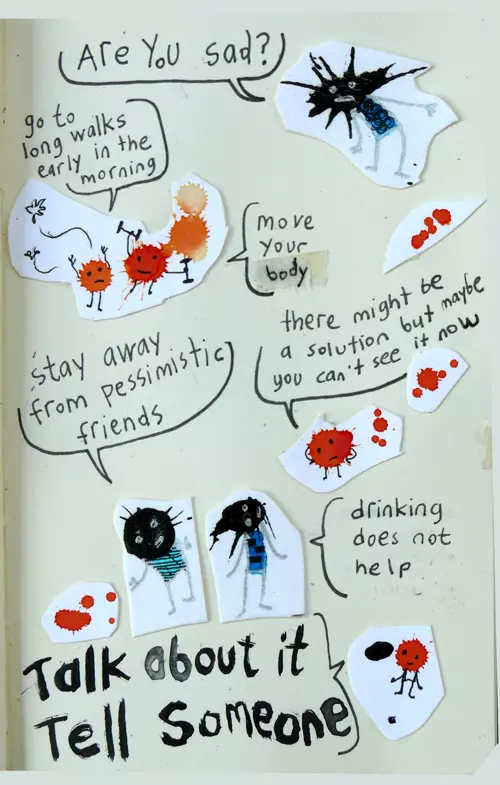 Are You sad?
go to
long walks
early in the
morning
move
your
body
there might be
a solution but maybe
you can't see it now
stay away
from pessimistic
friends
drinking
does not
help
Talk about it
Tell Someone